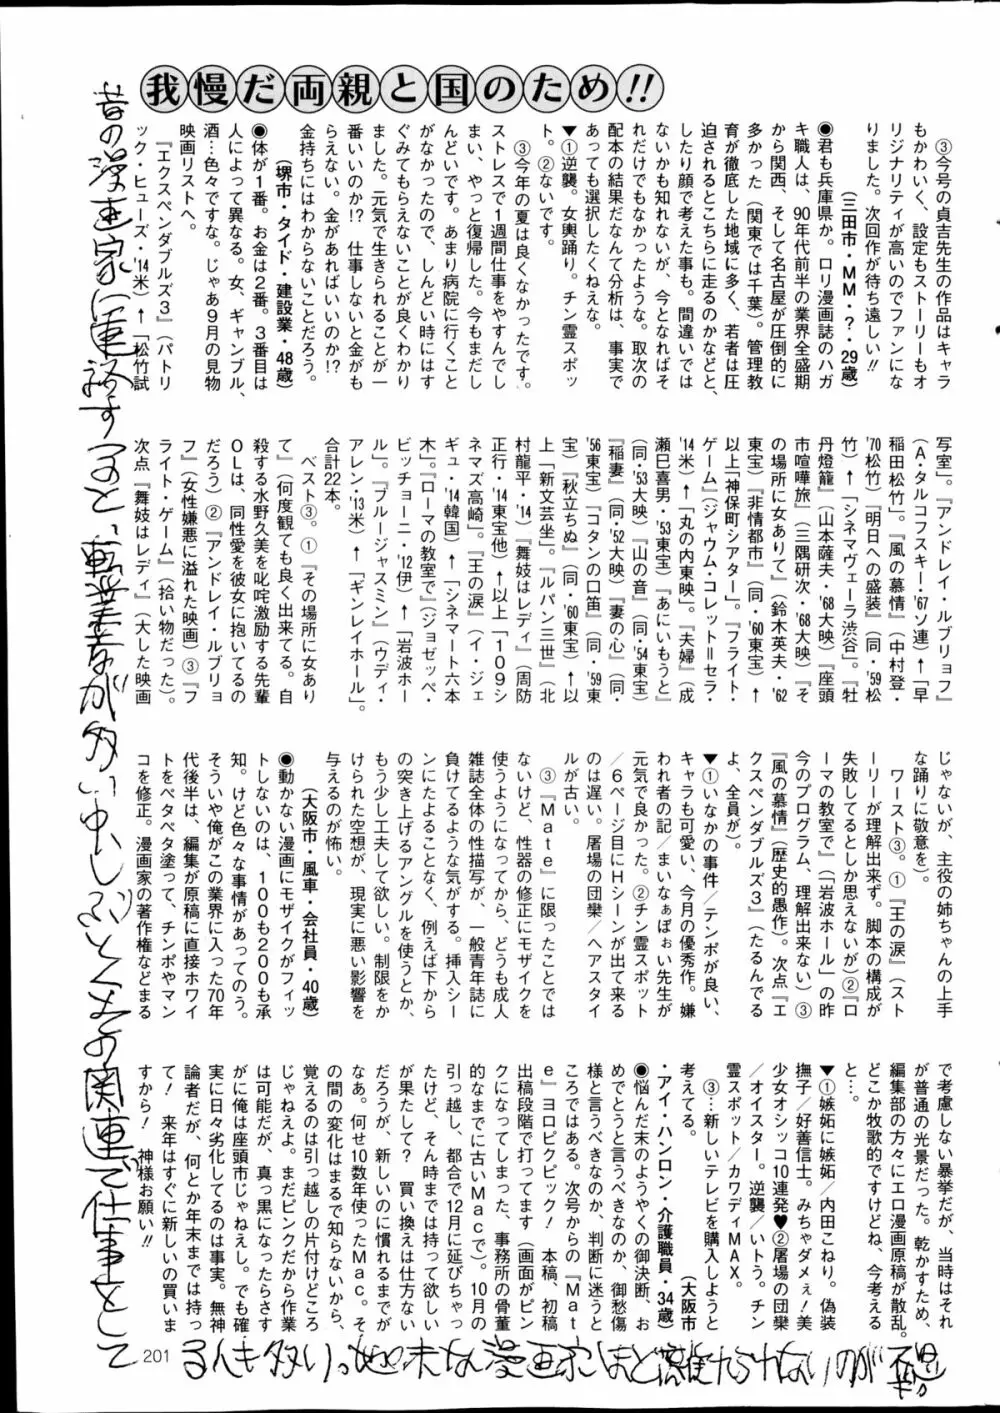 我慢だ両親と国のため!!
③今号の貞吉先生の作品はキャラ
もかわいく、設定もストーリーもオ
リジナリティが高いのでファンにな
りました。次回作が待ち遠しい!!
(三田市・MM・?・29歳)
●君も兵庫県か。ロリ漫画誌のハガ
キ職人は、90年代前半の業界全盛期
から関西、そして名古屋が圧倒的に
多かった(関東では千葉)。管理教
育が徹底した地域に多く、若者は圧
迫されるとこちらに走るのかなどと、
したり顔で考えた事も。間違いでは
ないかも知れないが、今となればそ
れだけでもなかったような。取次の
配本の結果だなんて分析は、事実で
あっても選択したくねえな。
▼①逆襲。女輿踊り。チン霊スポッ
ト。②ないです。
③今年の夏は良くなかったです。
ストレスで1週間仕事をやすんでし
まい、やっと復帰した。今もまだし
んどいです。あまり病院に行くこと
がなかったので、しんどい時にはす
ぐみてもらえないことが良くわかり
ました。元気で生きられることが一
番いいのか!? 仕事しないと金がも
らえない。金があればいいのか!?
金持ちにはわからないことだろう。
(堺市・タイド・建設業・48歳)
●体が1番。お金は2番。3番目は
人によって異なる。女、ギャンブル、
酒…色々ですな。じゃあ9月の見物
映画リストへ。
『エクスペンダブルズ3』(パトリ
ック・ヒューズ・'14米)↑「松竹試
写室」。『アンドレイ・ルブリョフ』
(A・タルコフスキー・'67ソ連)↑「早
稲田松竹」。『風の慕情』(中村登・
'70松竹)『明日への盛装』(同・'59松
竹)↑「シネマヴェーラ渋谷」。『牡
丹燈籠』(山本薩夫・'68大映)『座頭
市喧嘩旅』(三隅研次・'68大映)『そ
の場所に女ありて』(鈴木英夫・'62
東宝)『非情都市』(同・'60東宝)↑
以上「神保町シアター」。『フライト・
ゲーム』(ジャウム・コレット=セラ・
'14米)↑「丸の内東映」。『夫婦』(成
瀬巳喜男・'53東宝)『あにいもうと』
(同・'53大映)『山の音』(同・'54東宝)
『稲妻』(同・'52大映)『妻の心』(同・
'56東宝)『コタンの口笛』(同・'59東
宝)『秋立ちぬ』(同・'60東宝)↑以
上「新文芸坐」。『ルパン三世』(北
村龍平・'14)『舞妓はレディ』(周防
正行・'14東宝他)↑以上「109シ
ネマズ高崎」。『王の涙』(イ・ジェ
ギュ・'14韓国)↑「シネマート六本
木」。『ローマの教室で』(ジョゼッペ・
ピッチョーニ・'12伊)↑「岩波ホー
ル」。『ブルージャスミン』(ウディ・
アレン・'13米)↑「ギンレイホール」。
合計22本。
ベスト③。①『その場所に女あり
て』(何度観ても良く出来てる。自
殺する水野久美を叱咤激励する先輩
OLは、同性愛を彼女に抱いてるの
だろう)②『アンドレイ・ルブリョ
フ』(女性嫌悪に溢れた映画)③『フ
ライト・ゲーム』(拾い物だった)。
次点『舞妓はレディ』(大した映画
じゃないが、主役の姉ちゃんの上手
な踊りに敬意を)。
ワースト③。①『王の涙』(スト
ーリーが理解出来ず。脚本の構成が
失敗してるとしか思えないが)②『ロ
ーマの教室で』(「岩波ホール」の昨
今のプログラム、理解出来ない)③
『風の慕情』(歴史的愚作)。次点『エ
クスペンダブルズ3』(たるんでる
よ、全員が)。
▼①いなかの事件/テンポが良い、
キャラも可愛い、今月の優秀作。嫌
われ者の記/まいなぁぼぉい先生が
元気で良かった。②チン霊スポット
/6ページ目にHシーンが出て来る
のは遅い。屠場の団欒/ヘアスタイ
ルが古い。
③『Mate』に限ったことでは
ないけど、性器の修正にモザイクを
使うようになってから、どうも成人
雑誌全体の性描写が、一般青年誌に
負けてるような気がする。挿入シー
ンにたよることなく、例えば下から
の突き上げるアングルを使うとか、
もう少し工夫して欲しい。制限をか
けられた空想が、現実に悪い影響を
与えるのが怖い。
(大阪市・風車・会社員・40歳)
●動かない漫画にモザイクがフィッ
トしないのは、100も200も承
知。けど色々な事情があってのう。
そういや俺がこの業界に入った70年
代後半は、編集が原稿に直接ホワイ
トをペタペタ塗って、チンポやマン
コを修正。漫画家の著作権などまる
で考慮しない暴挙だが、当時はそれ
が普通の光景だった。乾かすため、
編集部の方々にエロ漫画原稿が散乱。
どこか牧歌的ですけどね、今考える
と…。
▼①嫉妬に嫉妬/内田こねり。偽装
撫子/好善信士。みちゃダメぇ!美
少女オシッコ10連発♥②屠場の団欒
/オイスター。逆襲/いトう。チン
霊スポット/カワディMAX。
③…新しいテレビを購入しようと
考えてる。
(大阪市
・アイ・ハンロン・介護職員・34歳)
●悩んだ末のようやくの御決断、お
めでとうと言うべきなのか、御愁傷
様と言うべきなのか、判断に迷うと
ころではある。次号からの『Mat
e』ヨロピクピック! 本稿、初稿
出稿段階で打ってます(画面がピン
クになってしまった、事務所の骨董
的なまでに古いMacで)。10月の
引っ越し、都合で12月に延びちゃっ
たけど、そん時までは持って欲しい
が果たして? 買い換えは仕方ない
だろうが、新しいのに慣れるまでが
なあ。何せ10数年使ったMac。そ
の間の変化はまるで知らないから、
覚えるのは引っ越しの片付けどころ
じゃねえよ。まだピンクだから作業
は可能だが、真っ黒になったらさす
がに俺は座頭市じゃねえし。でも確
実に日々劣化してるのは事実。無神
論者だが、何とか年末までは持っ
て! 来年はすぐに新しいの買いま
すから! 神様お願い!!
昔の漫画家に電話すると、転業者が多い中、しぶとくその関連で仕事をして
るんも多い。
201